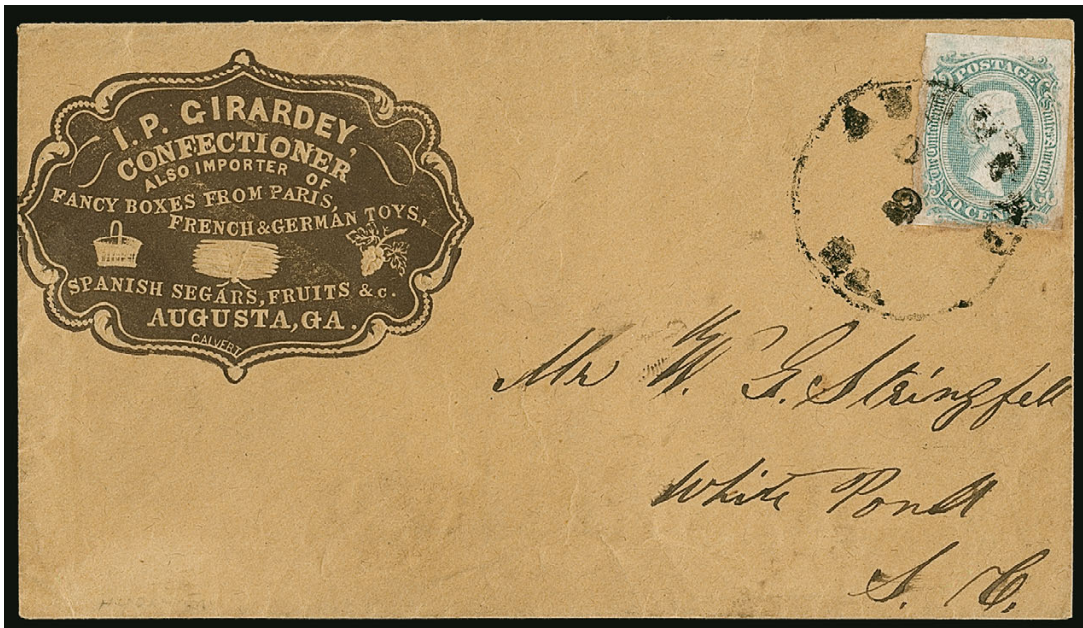 I. P. GIRARDEY,
CONFECTIONER
ALSO IMPORTER OF
FANCY BOXES FROM PARIS,
FRENCH & GERMAN TOYS,
SPANISH SEGARS, FRUITS &c.
AUGUSTA, GA.
CALVERT
POSTAGE
The Confederate States of America
10 CENTS
Mr W. G. Stringfell
White Pond
S. C.